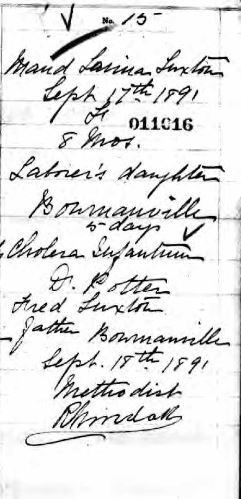 No. 15
Maud Lavina Luxton
Sept 17th 1891
F
011016
8 Mos.
Laborer's daughter
Bowmanville
5 days
Cholera Infantum
Dr. Potter
Fred Luxton
father Bowmanville
Sept. 18th 1891
Methodist